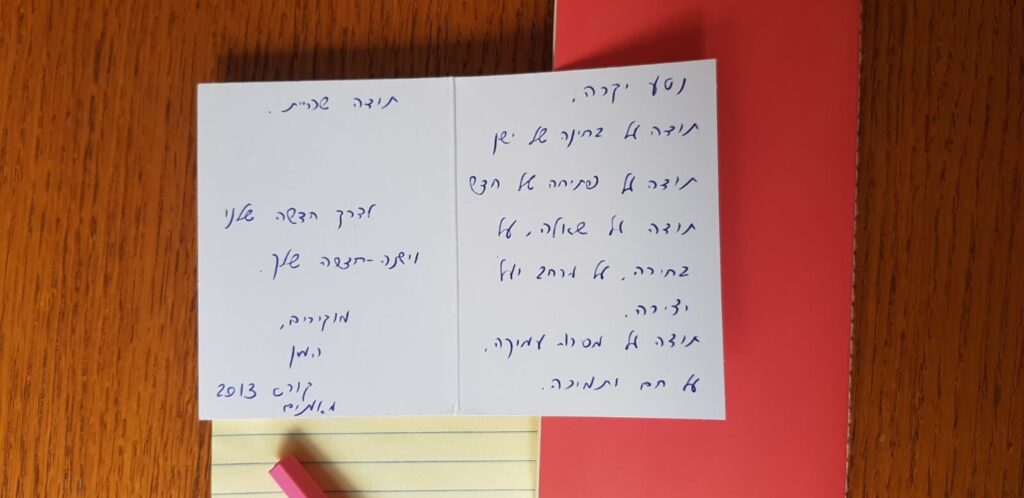 נטע יקרה,
תודה על בחינה של ישן
תודה על פתיחה של חדש
תודה על שאלה, על
בחירה, על מרחב ועל
יצירה.
תודה על מסירות עמיקה,
על חם ותמיכה.
תודה שהיית.
לדרך חדשה שלנו
וישנה-חדשה שלך.
מוקירים,
המון
קורס 2013
מאמנים